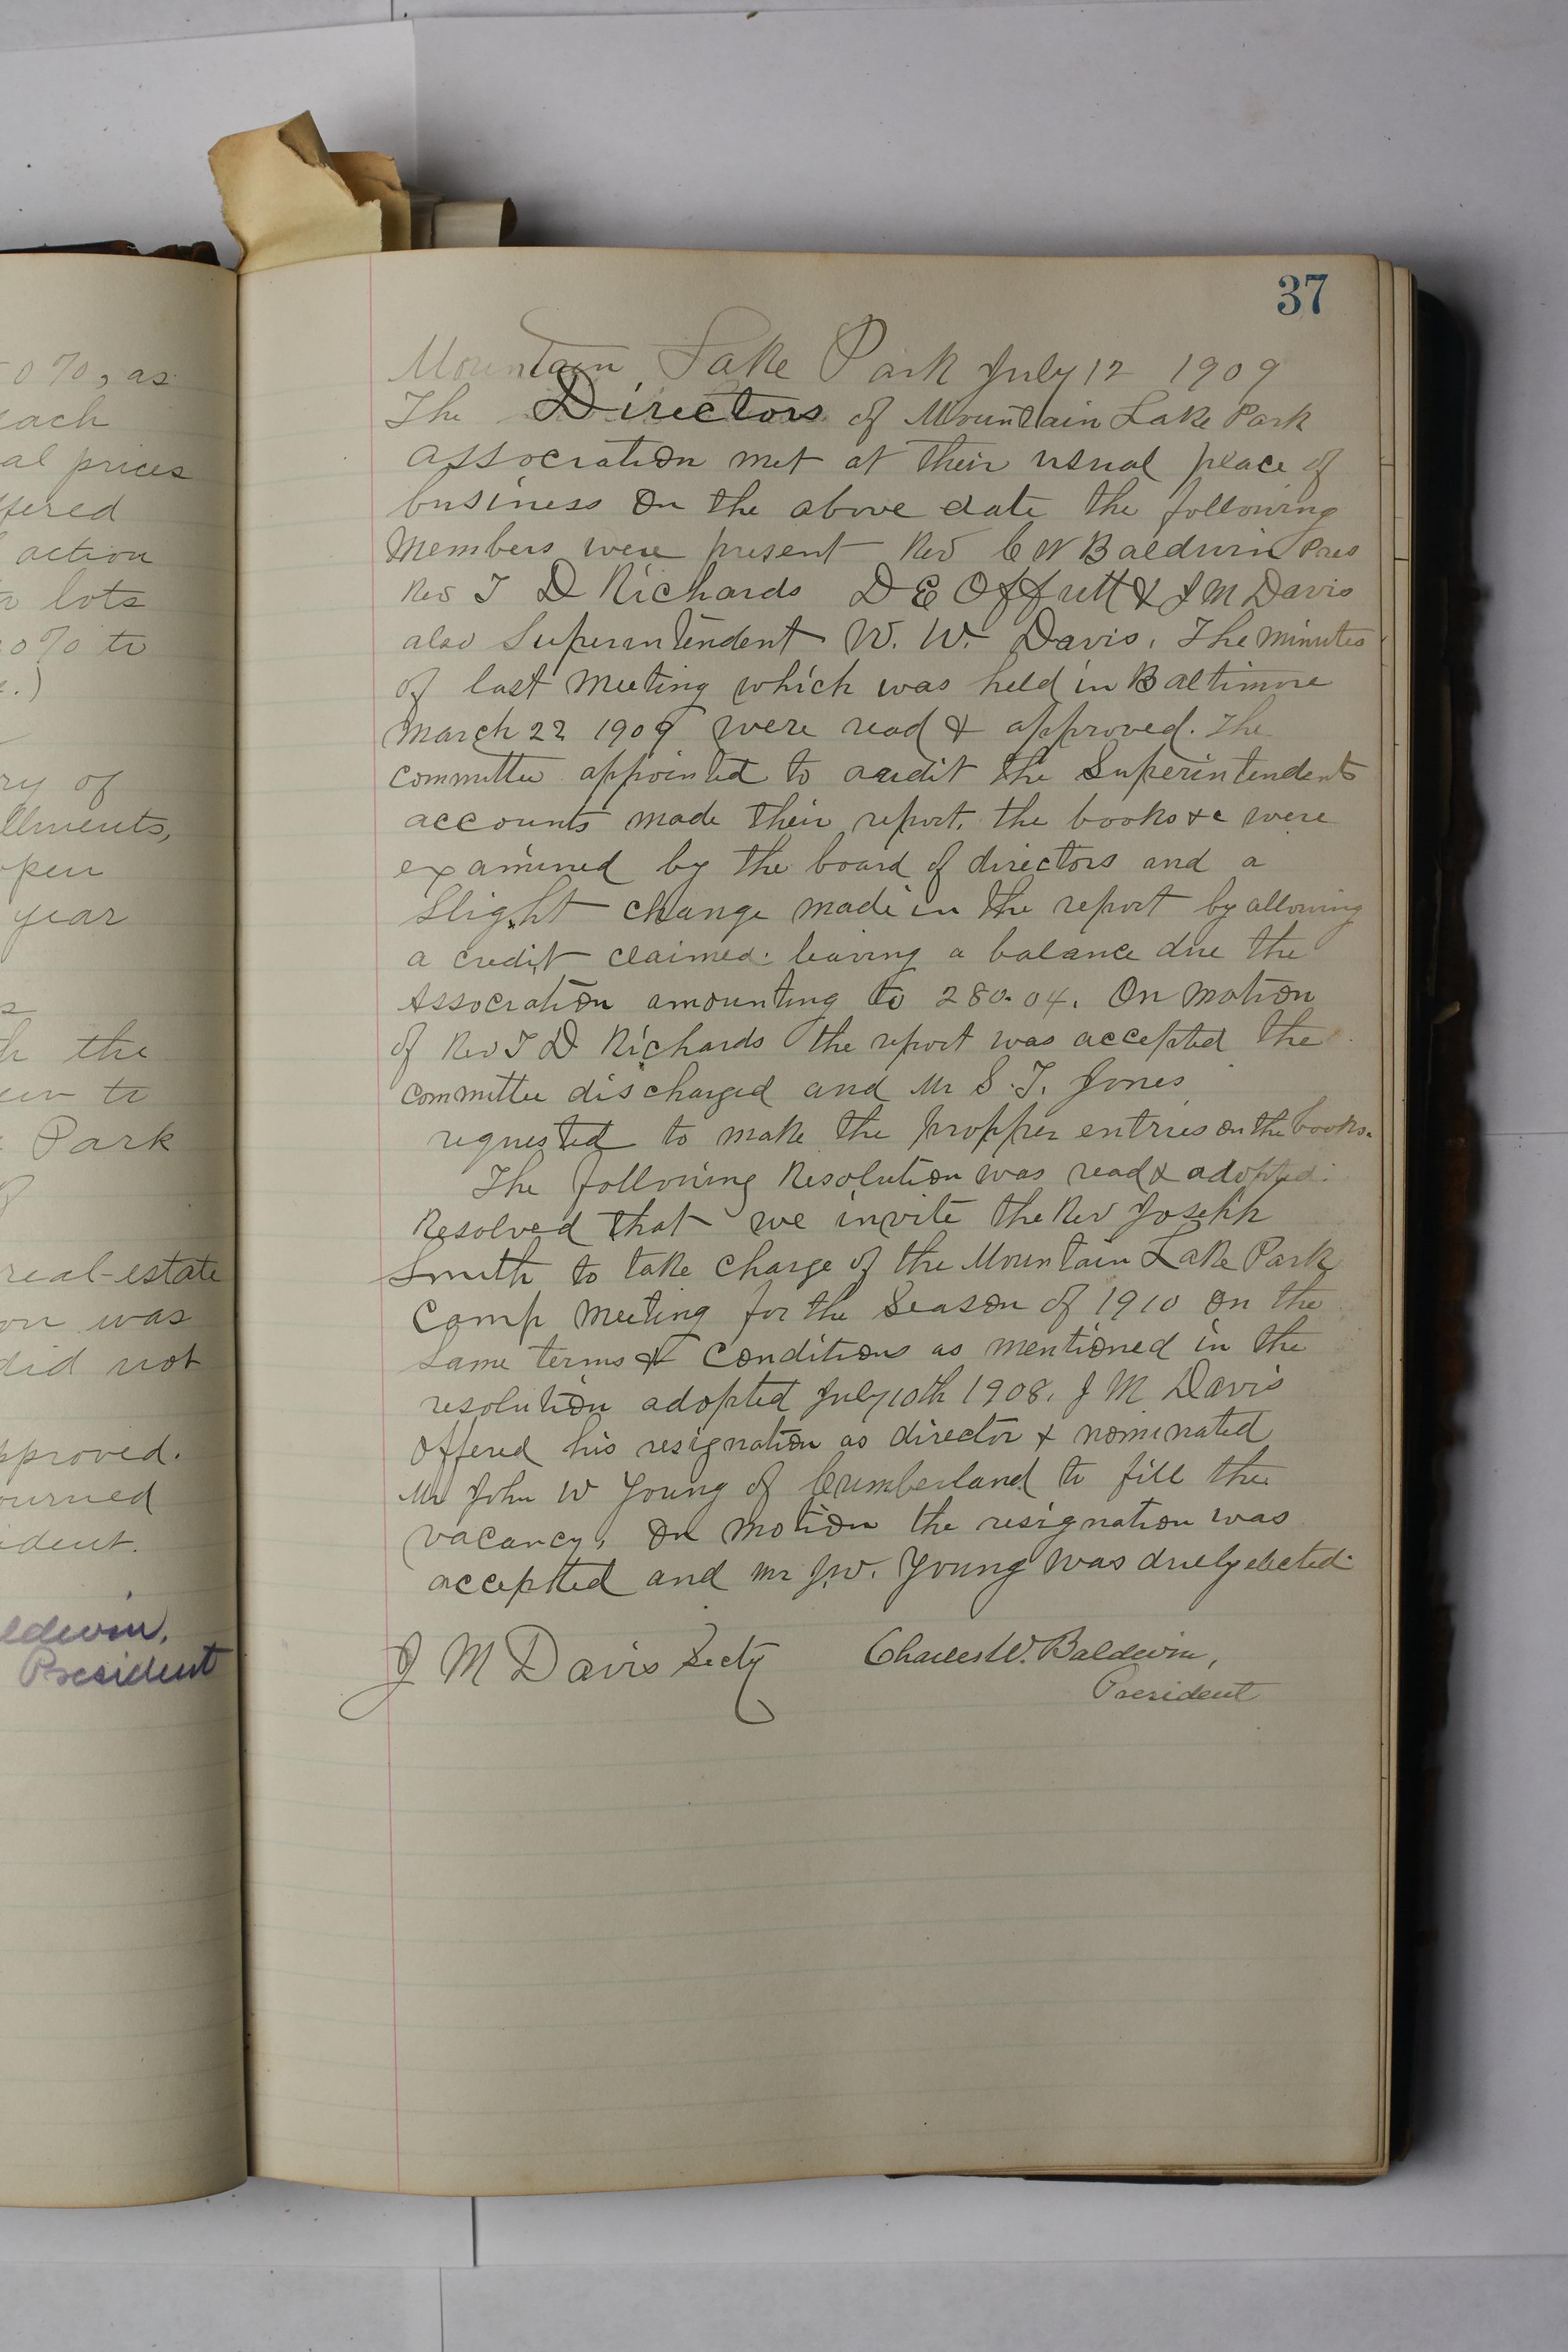 0%, as
each
al prices
ffered
action
lots
0% to
.)
ry of
llments,
open
year
the
to
Park
real-estate
on was
did not
pproved.
ourned
ident.
ldwin,
President
37
Mountain Lake Park July 12 1909
The Directors of Mountain Lake Park
Association met at their usual place of
business on the above date the following
Members were present Rev C W Baldwin Pres
Rev T D Richards D E Offutt & J M Davis
also Superintendent W. W. Davis. The minutes
of last Meeting which was held in Baltimore
March 22 1909 were read & approved. The
committee appointed to audit the Superintendents
accounts made their report. the books &c were
examined by the board of directors and a
Slight change made in the report by allowing
a credit claimed. leaving a balance due the
Association amounting to 280.04. On motion
of Rev T D Richards the report was accepted the
committee discharged and Mr S. T. Jones
requested to make the propper entries on the books.
The following Resolution was read & adopted.
Resolved that we invite the Rev Joseph
Smith to take charge of the Mountain Lake Park
Camp Meeting for the Season of 1910 on the
same terms & conditions as mentioned in the
resolution adopted July 10th 1908. J M Davis
offered his resignation as director & nominated
Mr John W Young of Cumberland to fill the
vacancy, on motion the resignation was
acceptted and Mr J.W. Young was duely elected.
J M Davis Secty
Charles W. Baldwin,
President